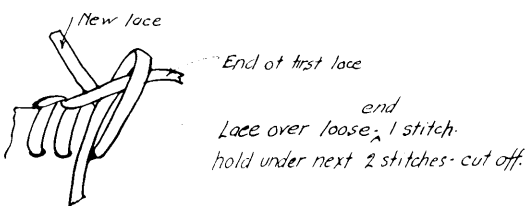 New lace
End of first lace
end
Lace over loose ^ 1 stitch.
hold under next 2 stitches - cut off.